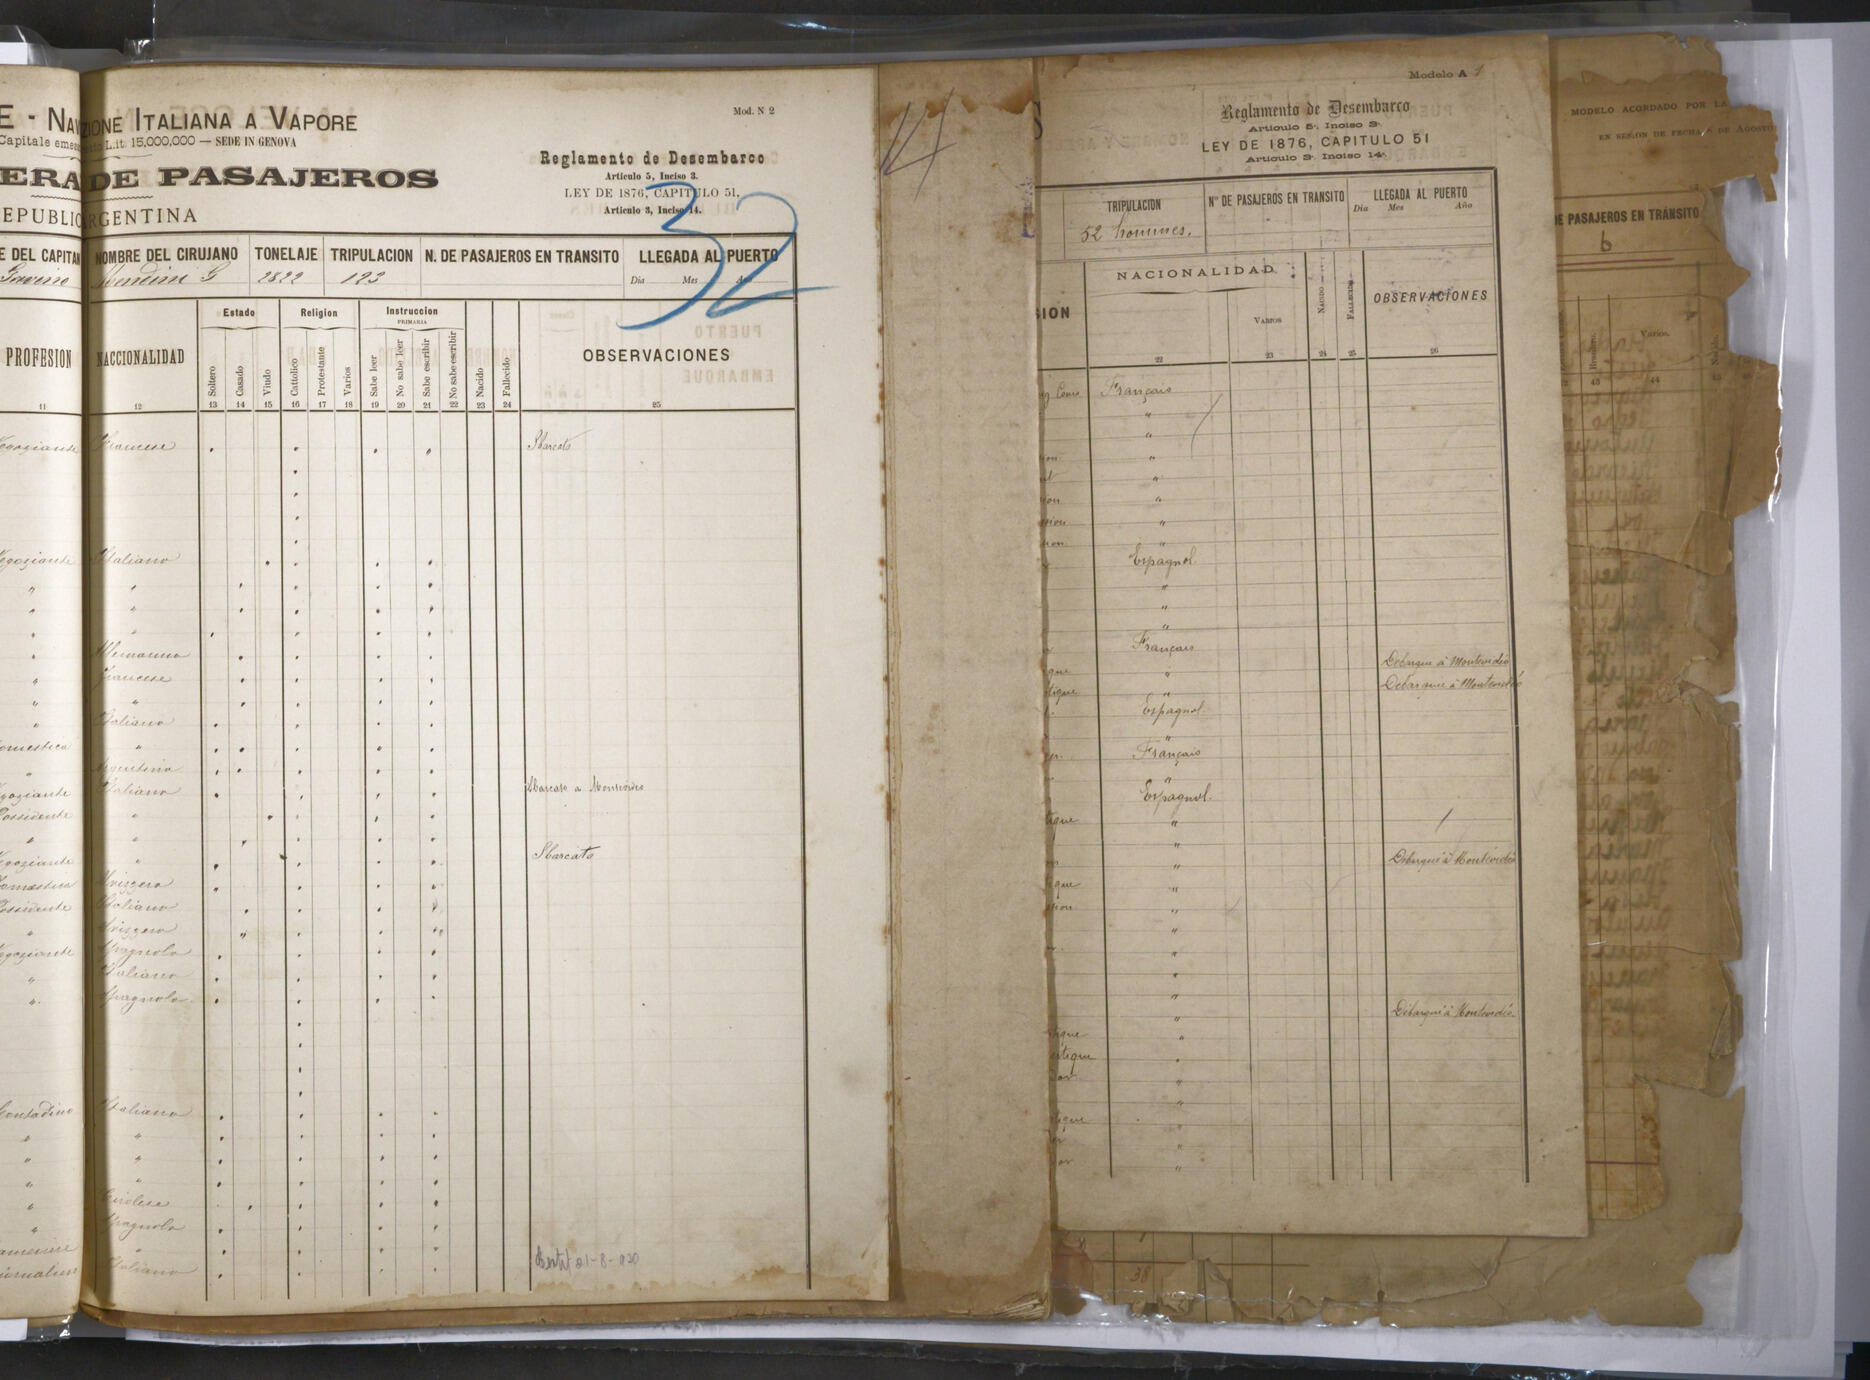 E - NAVIGAZIONE ITALIANA A VAPORE
Mod. N 2
Capitale emesso L.it. 15,000,000 — SEDE IN GENOVA
ERA DE PASAJEROS
REPUBLICA ARGENTINA
Reglamento de Desembarco
Articulo 5, Inciso 3.
LEY DE 1876, CAPITULO 51,
Articulo 3, Inciso 14.
32
E DEL CAPITAN NOMBRE DEL CIRUJANO TONELAJE TRIPULACION N. DE PASAJEROS EN TRANSITO LLEGADA AL PUERTO
Dia Mes
Gavino G 2822 123
PROFESION NACCIONALIDAD Estado Religion Instruccion PRIMARIA OBSERVACIONES
Soltero Casado Viudo Cattolico Protestante Varios Sabe leer No sabe leer Sabe escribir No sabe escribir Nacido Fallecido
11 12 13 14 15 16 17 18 19 20 21 22 23 24 25
egoziante Francese Sbarcato
egoziante Italiano
" "
" "
" "
"
" Francese
" "
" Italiano
omestica "
" Argentina
egoziante Italiano Sbarcato a Montevideo
ossidente "
" "
egoziante " Sbarcato
omestica Svizzera
ossidente Italiano
" Svizzero
egoziante Spagnolo
" Italiano
" Spagnolo
Contadino Italiano
" "
" "
" "
" Tirolese
" Spagnolo
"
Italiano
21-8-920
14
Modelo A 1
Reglamento de Desembarco
Articulo 5º Inciso 3º
LEY DE 1876, CAPITULO 51
Articulo 3º Inciso 14º
TRIPULACION Nº DE PASAJEROS EN TRANSITO LLEGADA AL PUERTO
Dia Mes Año
52 hommes.
SION NACIONALIDAD NACIDO FALLECIDO OBSERVACIONES
VARIOS
22 23 24 25 26
Français
"
"
"
"
"
"
"
Espagnol
"
"
"
Français
" Débarqué à Montevidéo
tique " Débarqué à Montevidéo
Espagnol.
"
Français
"
Espagnol.
tique "
"
" Débarqué à Montévidéo
que "
sion "
"
"
"
"
" Débarqué à Montevidéo.
tique "
estique "
"
"
tique "
"
"
MODELO ACORDADO POR LA
EN SESIÓN DE FECHA 8 DE AGOSTO
DE PASAJEROS EN TRÁNSITO
6
Varios.
43 44
38